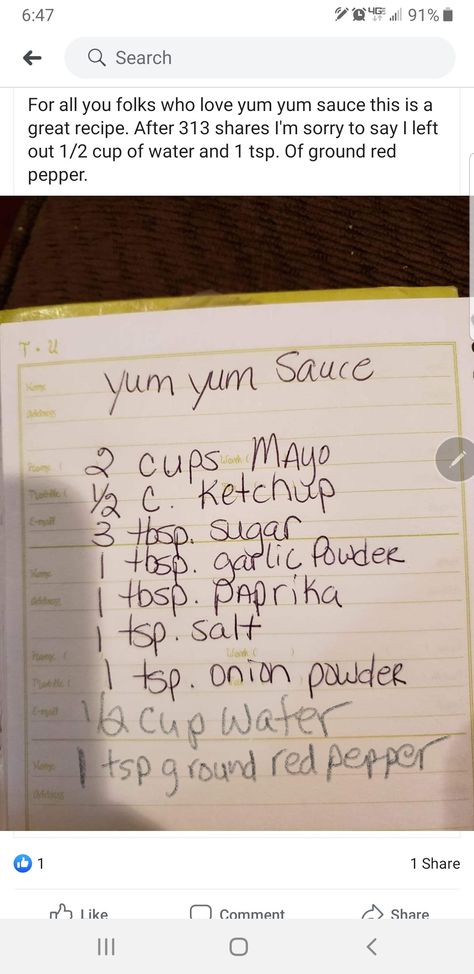 6:47
4GE 91%
Search
For all you folks who love yum yum sauce this is a
great recipe. After 313 shares I'm sorry to say I left
out 1/2 cup of water and 1 tsp. Of ground red
pepper.
T • U
Name
yum yum Sauce
Address
Home (
Work (
2 cups MAyo
Mobile (
1/2 C. Ketchup
E-mail
3 tbsp. sugar
1 tbsp. garlic Powder
Name
1 tbsp. PAprika
Address
1 tsp. salt
Home (
Work (
1 tsp. onion powder
Mobile (
E-mail
1/2 cup water
Name
1 tsp ground red pepper
Address
1
1 Share
Like
Comment
Share